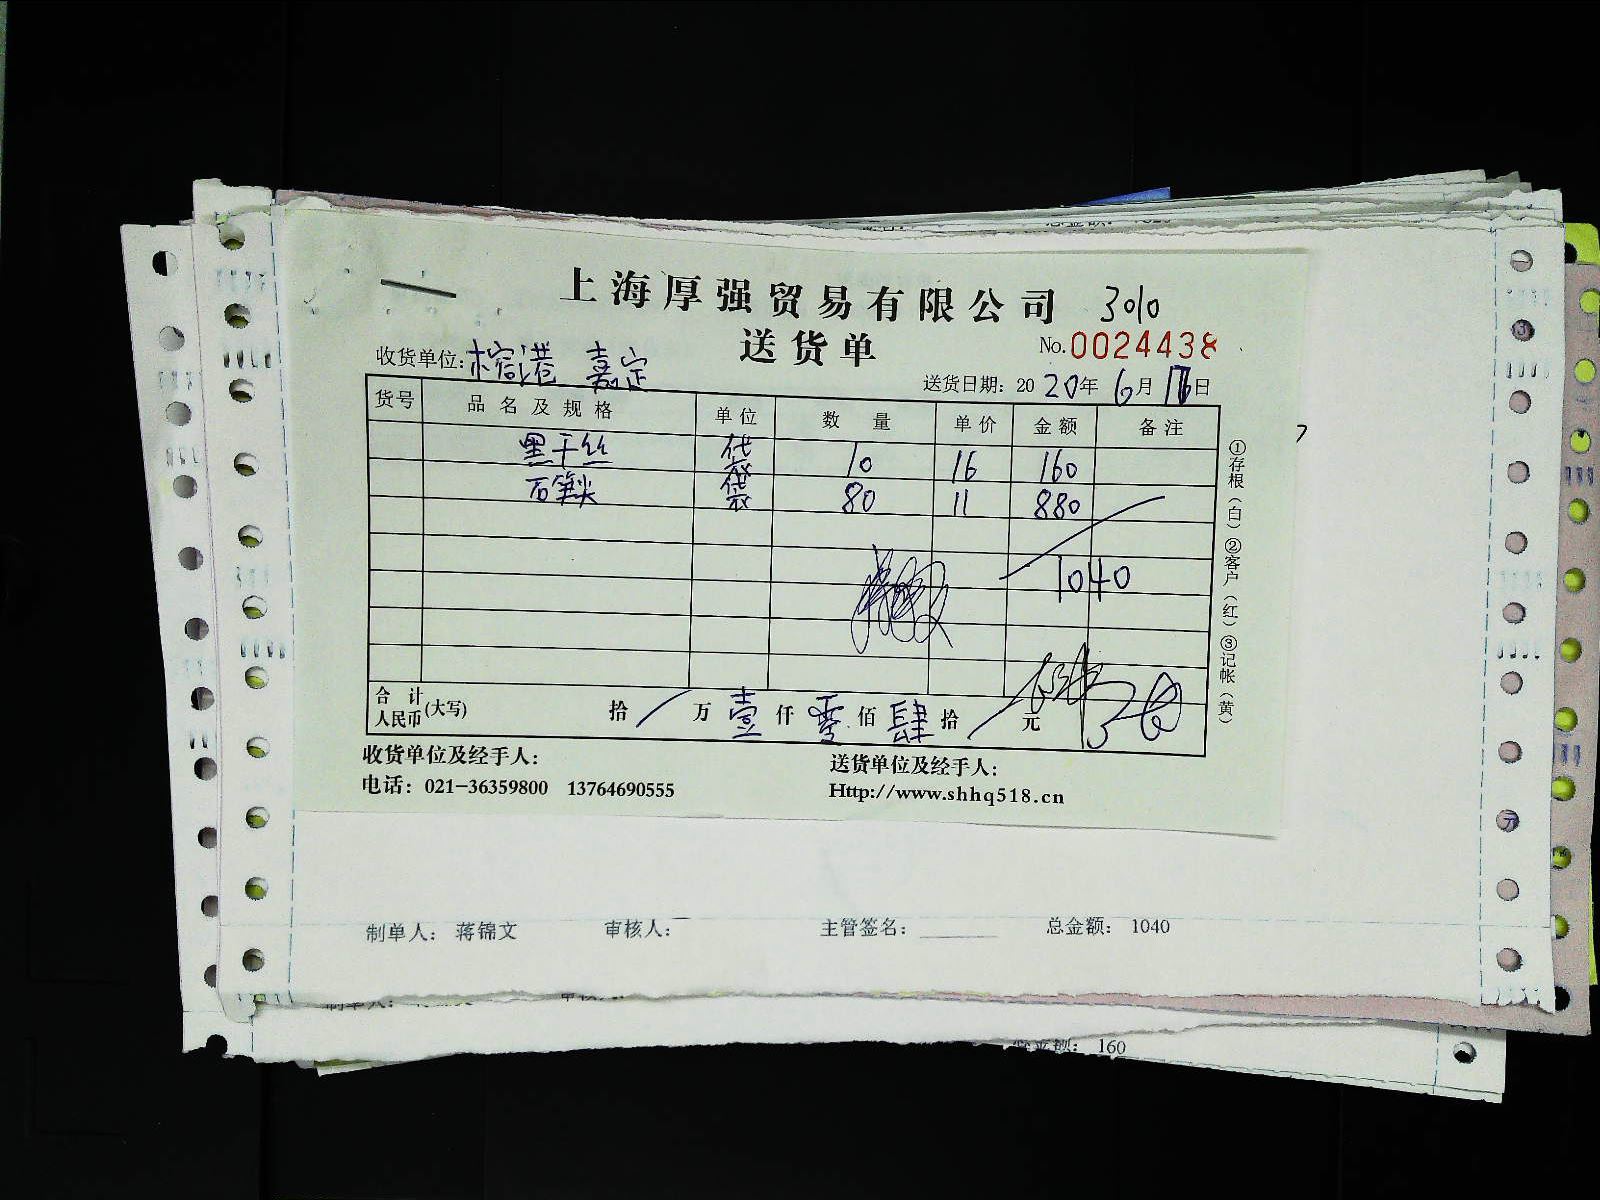 上海厚强贸易有限公司 3010
送货单 No.0024438
收货单位:榕港 嘉定
送货日期: 2020年6月16日
货号 品名及规格 单位 数量 单价 金额 备注
黑干丝 袋 10 16 160
石笋尖 袋 80 11 880
1040
合计人民币(大写) 拾/万壹仟零佰肆拾/元
①存根(白)②客户(红)③记帐(黄)
收货单位及经手人: 送货单位及经手人:
电话: 021-36359800 13764690555 Http://www.shhq518.cn
制单人: 蒋锦文 审核人: 主管签名: 总金额: 1040
总金额: 160